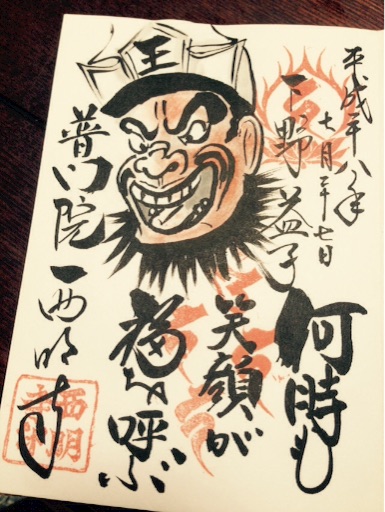 平成廿八年
七月二十七日
下野 益子
何時も
笑顔が
福を呼ぶ
王
普門院 西明寺